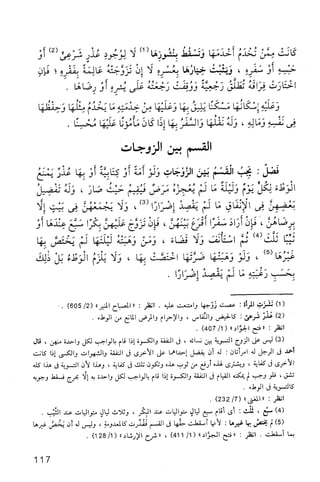 كَانَتْ مِمَّنْ تُخْدَمُ أَخْدَمَهَا وَتَسْقُطُ بِنُشُوزِهَا (1) لَا لِوُجُودِ عُذْرٍ شَرْعِيٍّ (2) أَوْ
حَبْسِهِ أَوْ سَفَرِهِ ، وَيَثْبُتُ خِيَارُهَا بِعُسْرِهِ لَا إِنْ تَزَوَّجَتْهُ عَالِمَةً بِفَقْرِهِ ؛ فَإِنِ
اخْتَارَتْ فِرَاقَهُ تُطَلَّقُ رَجْعِيَّةً وَوُقِفَتْ رَجْعَتُهُ عَلَى يُسْرِهِ أَوْ رِضَاهَا .
وَعَلَيْهِ إِسْكَانُهَا مَسْكَنًا يَلِيقُ بِهَا وَعَلَيْهَا مِنْ خِدْمَتِهِ مَا يَخْدُمُ مِثْلُهَا وَحِفْظُهَا
فِي نَفْسِهِ وَمَالِهِ ، وَلَهُ نَقْلُهَا وَالسَّفَرُ بِهَا إِذَا كَانَ مَأْمُونًا عَلَيْهَا مُحْسِنًا .
القسم بين الزوجات
فَصْلٌ : يَجِبُ الْقَسْمُ بَيْنَ الزَّوْجَاتِ وَلَوْ أَمَةً أَوْ كِتَابِيَّةً أَوْ بِهَا عُذْرٌ يَمْنَعُ
الْوَطْءَ لِكُلٍّ يَوْمٌ وَلَيْلَةٌ مَا لَمْ يُعْجِزْهُ مَرَضٌ فَيُقِيمُ حَيْثُ صَارَ ، وَلَهُ تَفْضِيلُ
بَعْضِهِنَّ فِي الْإِنْفَاقِ مَا لَمْ يَقْصِدْ إِضْرَارًا (3) ، وَلَا يَجْمَعُهُنَّ فِي بَيْتٍ إِلَّا
بِرِضَاهُنَّ ، فَإِنْ أَرَادَ سَفَرًا أَقْرَعَ بَيْنَهُنَّ ، فَإِنْ تَزَوَّجَ عَلَيْهِنَّ بِكْرًا سَبَّعَ عِنْدَهَا أَوْ
ثَيِّبًا ثَلَّثَ (4) ثُمَّ اسْتَأْنَفَ وَلَا قَضَاءَ ، وَمَنْ وَهَبَتْهُ لَيْلَتَهَا لَمْ يَخْتَصَّ بِهَا
غَيْرُهَا (5) ، وَلَوْ وَهَبَتْهَا ضَرَّتَهَا اخْتَصَّتْ بِهَا ، وَلَا يَلْزَمُ الْوَطْءُ بَلْ ذَلِكَ
بِحَسَبِ رَغْبَتِهِ مَا لَمْ يَقْصِدْ إِضْرَارًا .
(1) نَشَزَتِ المرأة : عصت زوجها وامتنعت عليه . انظر : «المصباح المنير» (2/ 605) .
(2) عُذْرٌ شَرعيٌّ : كالحيض والنفاس ، والإحرام والمرض المانع من الوطء .
انظر : «فتح الجوَّاد» (1/ 407) .
(3) ليس على الزوج التسوية بين نسائه ، في النفقة والكسوة إذا قام بالواجب لكل واحدة منهن ، قال
أحمد في الرجل له امرأتان : له أن يفضل إحداهما على الأخرى في النفقة والشهوات والكسي إذا كانت
الأخرى في كفاية ، ويشتري لهذه أرفع من ثوب هذه وتكون تلك في كفاية ، وهذا لأن التسوية في هذا كله
تشق ، فلو وجب لم يمكنه القيام في النفقة والكسوة إذا قام بالواجب لكل واحدة به إلَّا بحرج فسقط وجوبه
كالتسوية في الوطء .
انظر : «المغني» (7/ 232) .
(4) سبَّع ، ثلَّث : أي أقام سبع ليالٍ متواليات عند البكر ، وثلاث ليالٍ متواليات عند الثَّيِّب .
(5) لم يختص بها غيرها : لأنها أسقطت حقَّها في القسم فقُدِّرت كالمعدومة ، وليس له أن يَخُصَّ غيرها
بما أسقطت . انظر : «فتح الجوَّاد» (1/ 411) ، «شرح الإرشاد» (1/ 128) .
117